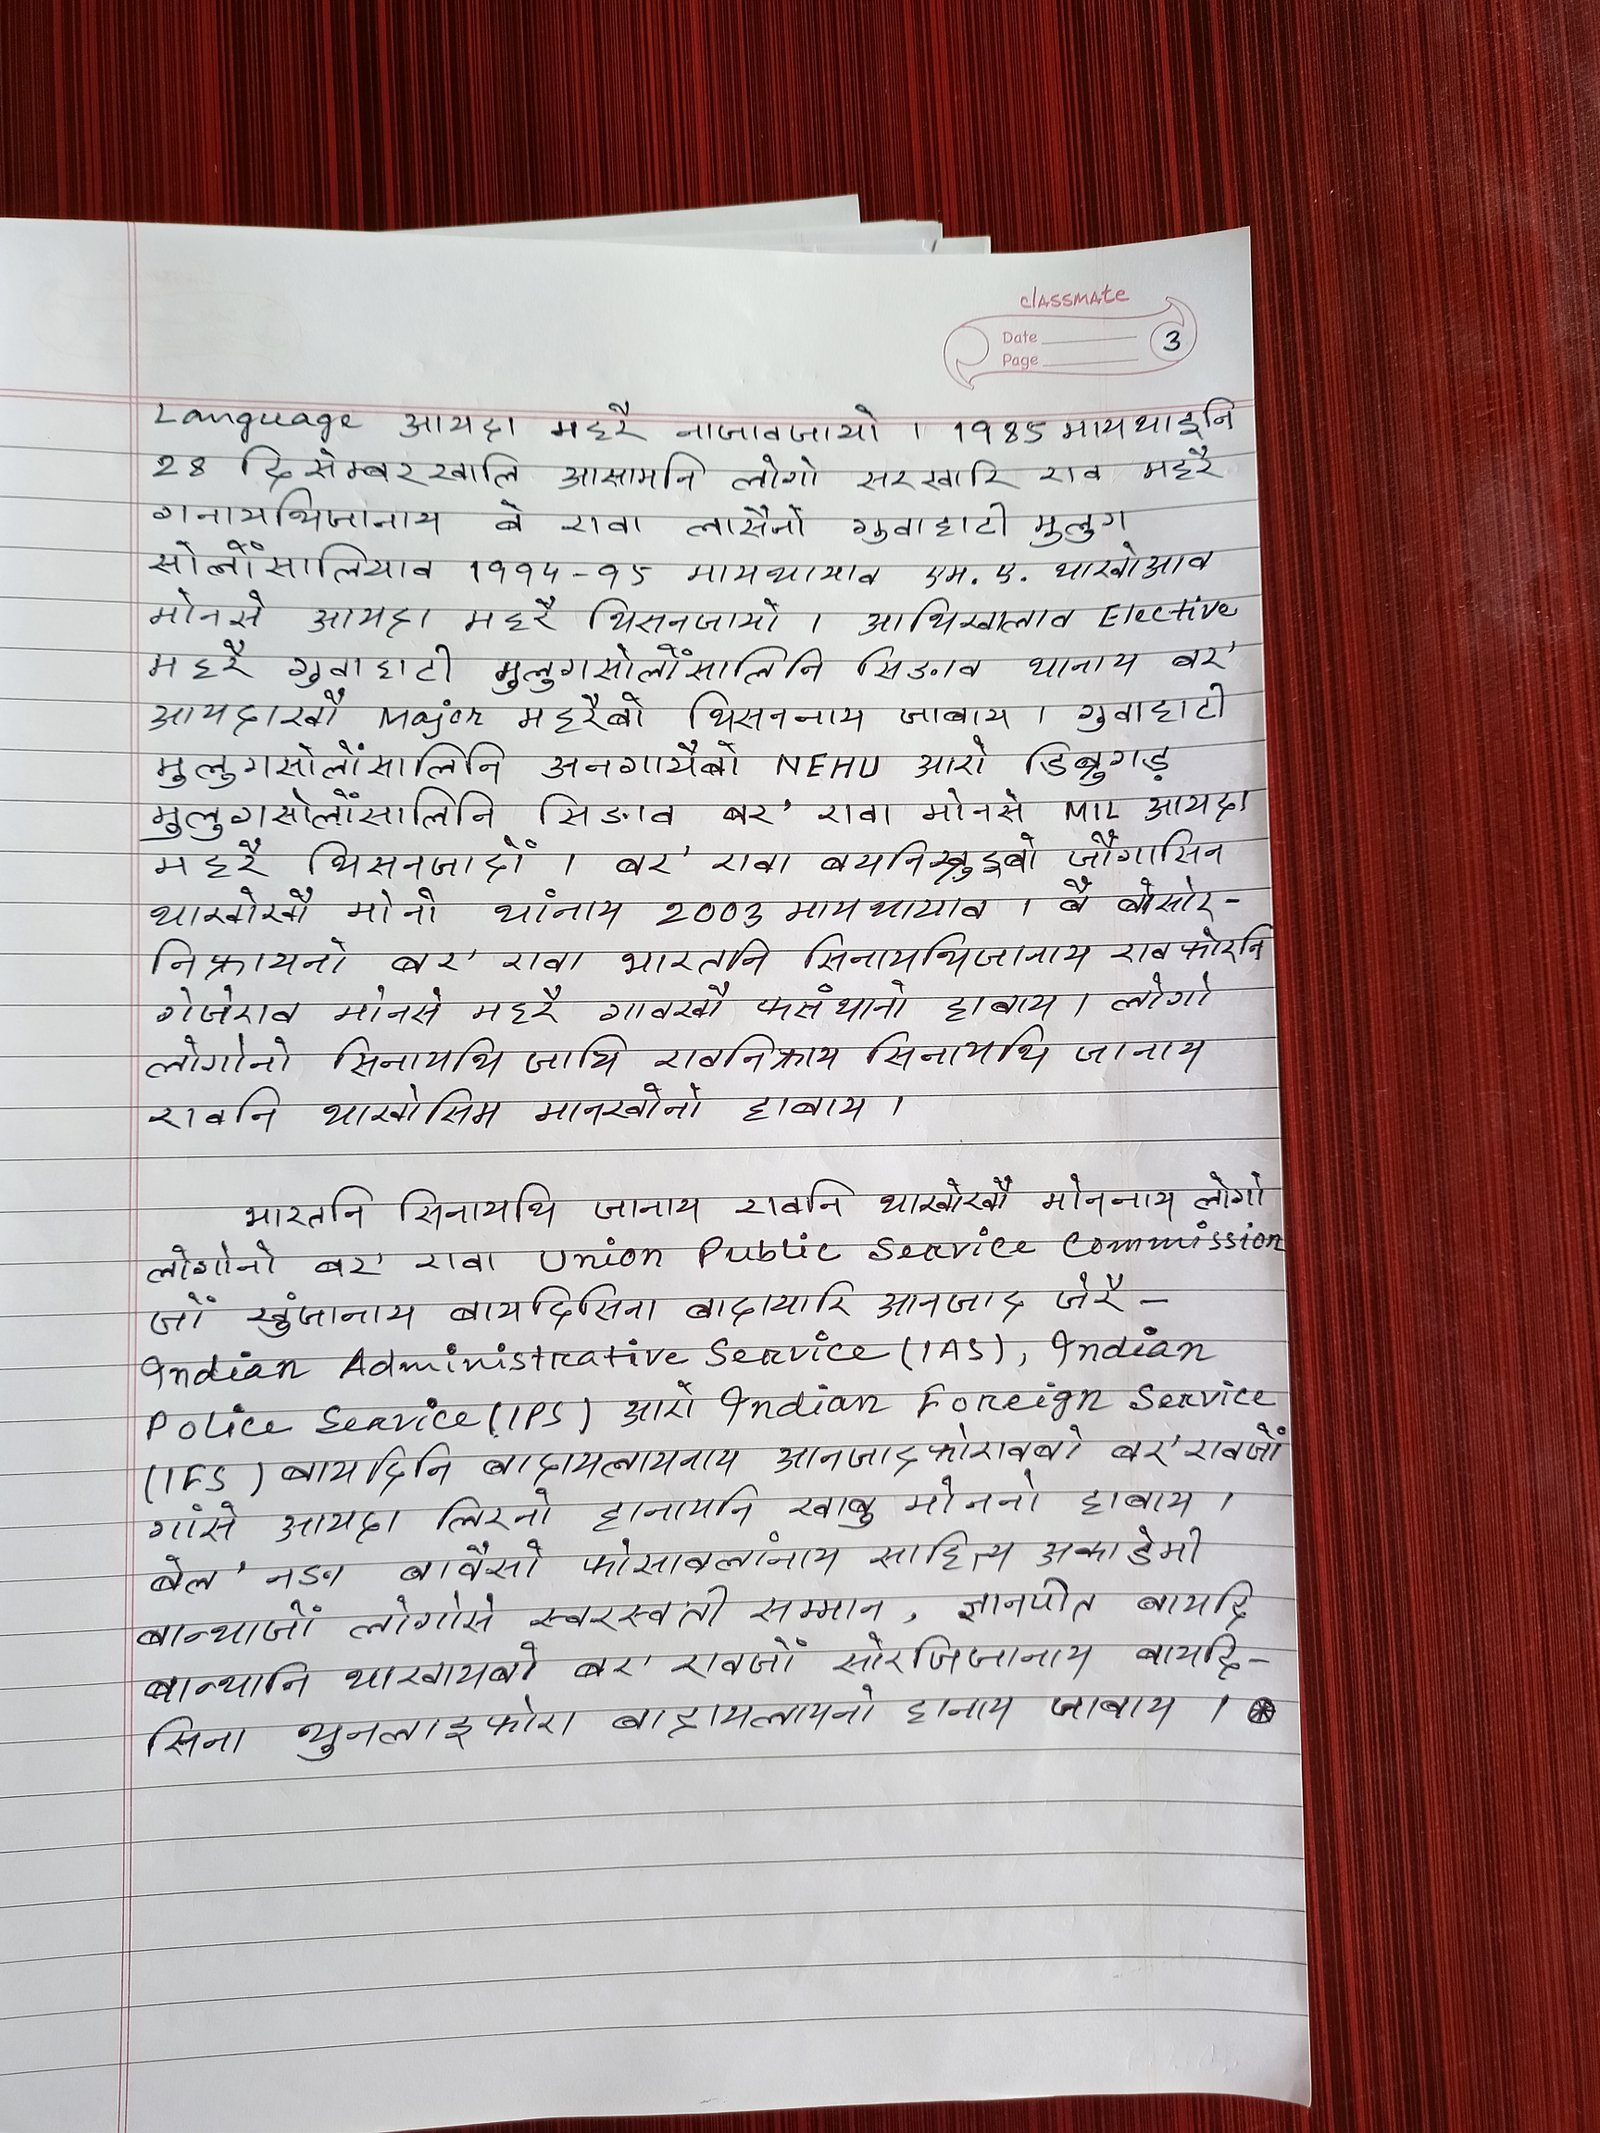 classmate
Date
Page
3
Language आयदा महरै नाजावजायो । 1985 मायथाइनि
28 दिसेम्बरखालि आसामनि लोगो सरखारि राव महरै
गनायथिजानाय बे रावा लासैनो गुवाहाटी मुलुग
सोलोंसालियाव 1994-95 मायथायाव एम. ए. थाखोआव
मोनसे आयदा महरै थिसनजायो । आथिखालाव Elective
महरै गुवाहाटी मुलुगसोलोंसालिनि सिङाव थानाय बर'
आयदाखौ Major महरैबो थिसननाय जाबाय । गुवाहाटी
मुलुगसोलोंसालिनि अनगायैबो NEHU आरो डिब्रुगड़
मुलुगसोलोंसालिनि सिङाव बर' रावा मोनसे MIL आयदा
महरै थिसनजादों । बर' रावा बयनिख्रुइबो जौगासिन
थाखोखौ मोनो थांनाय 2003 मायथायाव । बै बोसोर-
निफ्रायनो बर' रावा भारतनि सिनायथिजानाय रावफोरनि
गेजेराव मोनसे महरै गावखौ फसंथानो हाबाय । लोगो
लोगोनो सिनायथि जायि रावनिफ्राय सिनायथि जानाय
रावनि थाखोसिम मानखोनो हाबाय ।
भारतनि सिनायथि जानाय रावनि थाखोखौ मोननाय लोगो
लोगोनो बर' रावा Union Public Service Commission
जों खुंजानाय बायदिसिना बादायारि आनजाद जेरै –
Indian Administrative Service (IAS), Indian
Police Service (IPS) आरो Indian Foreign Service
(IFS) बायदिनि बादायलायनाय आनजादफोरावबो बर' रावजों
गांसे आयदा लिरनो हानायनि खाबु मोननो हाबाय ।
बेल' नङा बावैसो फोसावलांनाय साहित्य अकाडेमी
बान्थाजों लोगोसे स्वरस्वती सम्मान, ज्ञानपीत बायदि
बान्थानि थाखायबो बर' रावजों सोरजिजानाय बायदि-
सिना थुनलाइफोरा बादायलायनो हानाय जाबाय ।